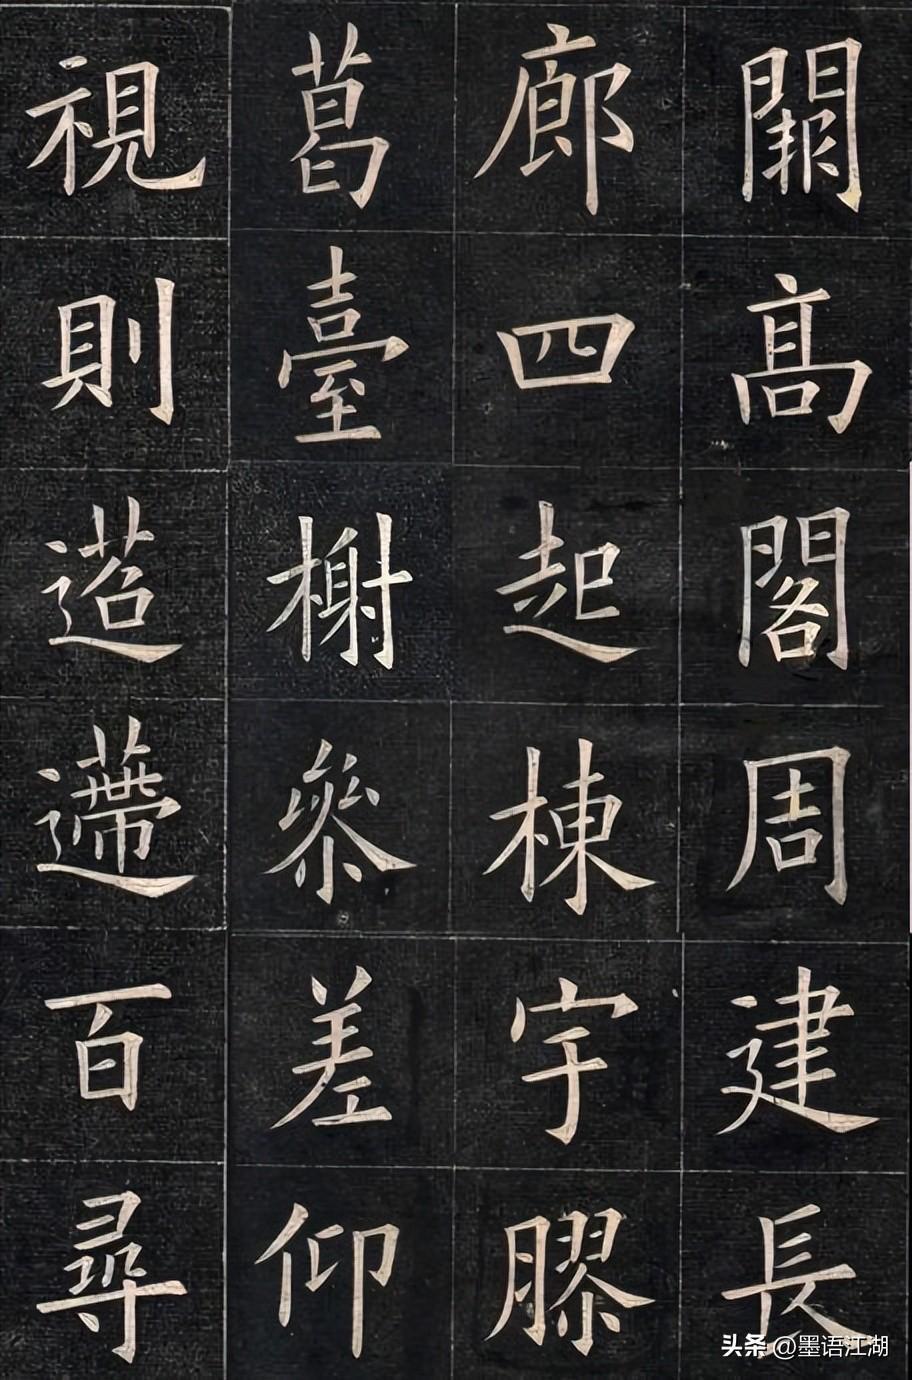 闕高閣周建長
廊四起棟宇膠
葛臺榭參差仰
視則迢遰百尋
头条 @墨语江湖